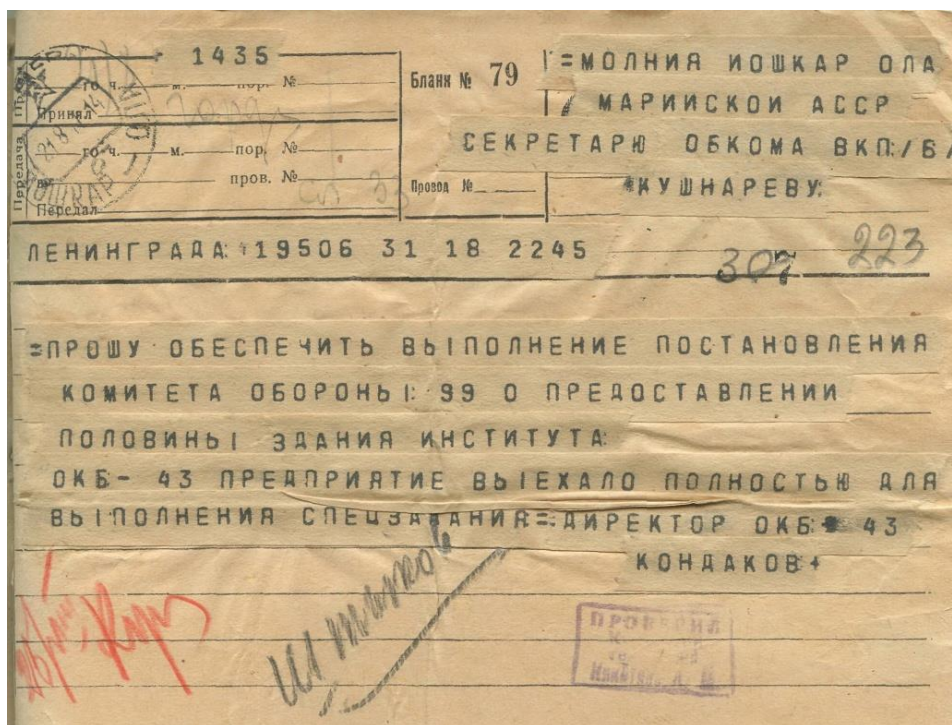 1435
го ч. м. пор. №
Принял
Передача
го ч. м. пор. №
пров. №
Передал
Бланк № 79
Провод №
=МОЛНИЯ ИОШКАР ОЛА
МАРИИСКОИ АССР
СЕКРЕТАРЮ ОБКОМА ВКП:/Б/
КУШНАРЕВУ:
ЛЕНИНГРАДА: 19506 31 18 2245
307 223
=ПРОШУ ОБЕСПЕЧИТЬ ВЫПОЛНЕНИЕ ПОСТАНОВЛЕНИЯ
КОМИТЕТА ОБОРОНЫ: 99 О ПРЕДОСТАВЛЕНИИ
ПОЛОВИНЫ ЗДАНИЯ ИНСТИТУТА:
ОКБ- 43 ПРЕДПРИЯТИЕ ВЫЕХАЛО ПОЛНОСТЬЮ ДЛЯ
ВЫПОЛНЕНИЯ СПЕЦЗАДАНИЯ=ДИРЕКТОР ОКБ- 43
КОНДАКОВ+
ПРОВЕРИЛ